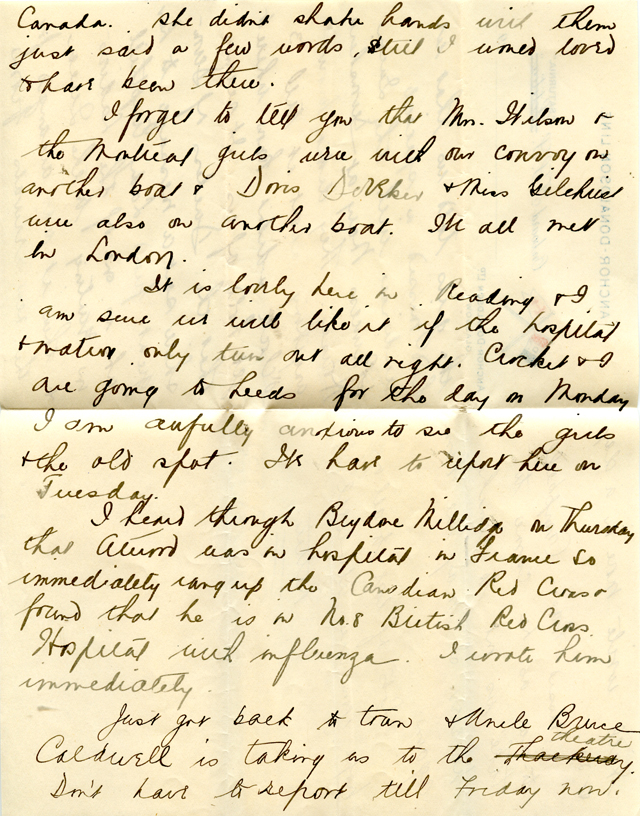 Canada. She didn't shake hands with them
just said a few words, still I would loved
to have been there.
I forget to tell you that Mrs. Wilson &
the Montreal girls were with our convoy on
another boat & Doris & Miss Gilchrist
were also on another boat. We all met
in London.
It is lovely here in Reading & I
am sure we will like it if the hospital
& matron only turn out all right. Crocket & I
are going to Leeds for the day on Monday
I am awfully anxious to see the girls
& the old spot. We have to report here on
Tuesday.
I heard through Millidge on Thursday
that Atwood was in hospital in France so
immediately rang up the Canadian Red Cross &
found that he is in No. 8 British Red Cross
Hospital with influenza. I wrote him
immediately.
Just got back to town & Uncle Bruce
theatre
Caldwell is taking us to the
Don't have to report till Friday now.